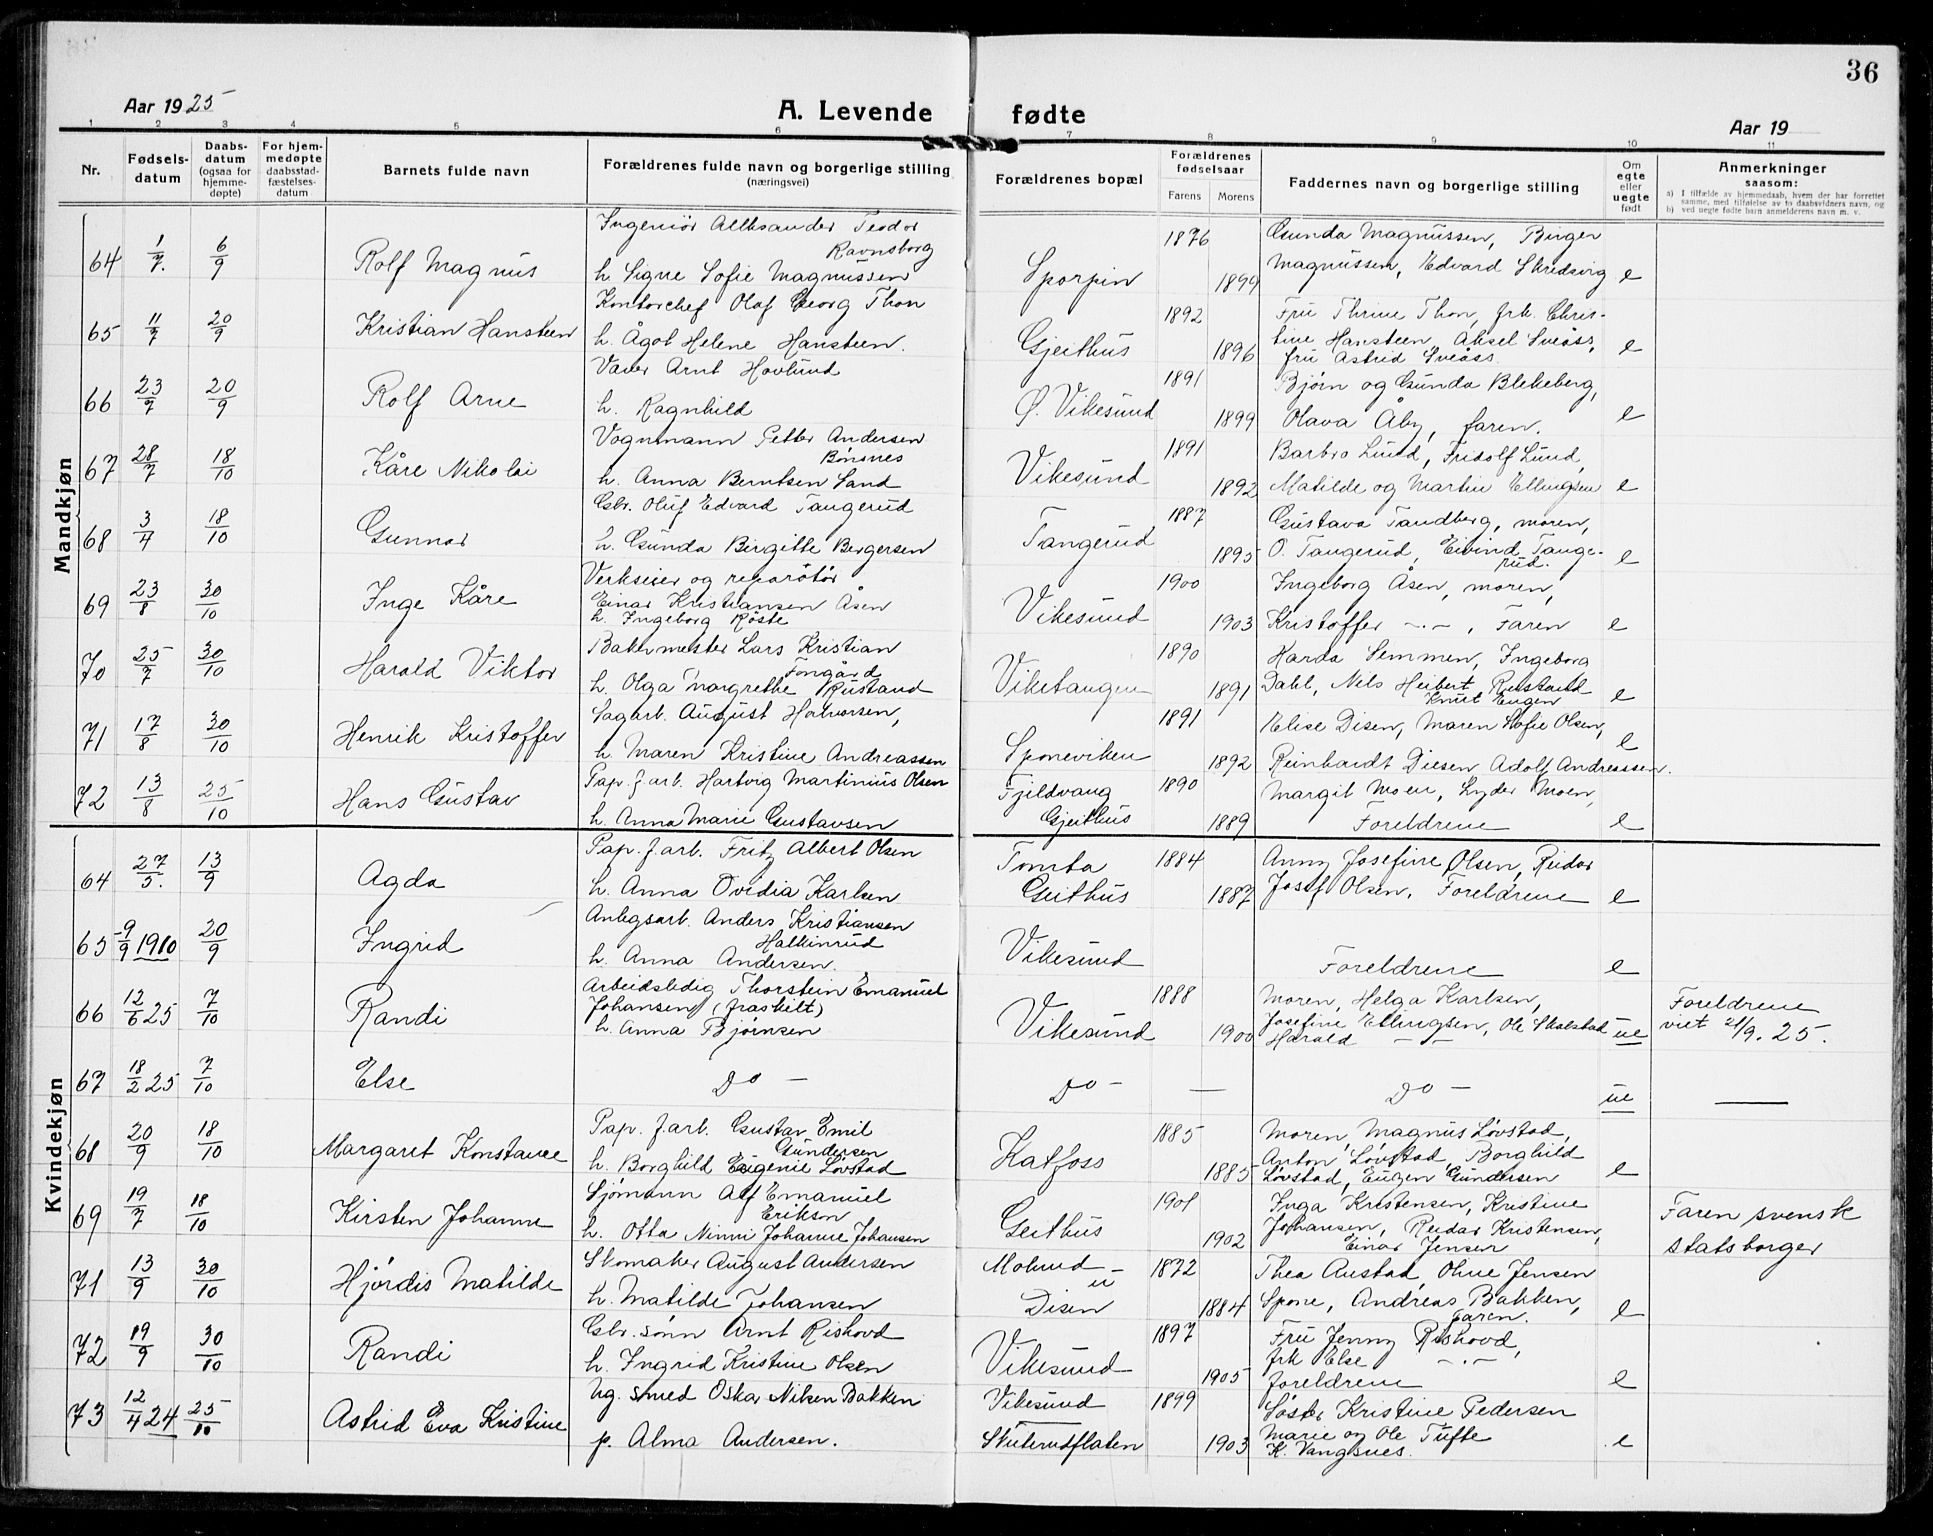 36
Aar 1925
A. Levende fødte
Aar 19
1 2 3 4 5 6 7 8 9 10 11
Nr.
Fødselsdatum
Daabsdatum (ogsaa for hjemmedøpte)
For hjemmedøpte daabsstadfæstelsesdatum
Barnets fulde navn
Forældrenes fulde navn og borgerlige stilling (næringsvei)
Forældrenes bopæl
Forældrenes fødselsaar
Farens Morens
Faddernes navn og borgerlige stilling
Om egte eller uegte født
Anmerkninger saasom:
a) I tilfælde av hjemmedaab, hvem der har forrettet samme, med tilføielse av to daabsvidners navn, og
b) ved uegte fødte barn anmelderens navn m. v.
Mandkjøn
64 1/7. 6/9 Rolf Magnus
Ingeniør Alleksander Teodor
Ravnsborg
h. Signe Sofie Magnussen
Sporpin 1876 1899
Gunda Magnussen, Birger
Magnussen, Edvard Skredsvig e
65 11/7 20/9 Kristian Hansteen
Kontorchef Olaf Georg Thon
h. Ågot Helene Hansteen.
Gjeithus 1892 1896
Fru Thrine Thon, frk. Chris-
tine Hansteen, Aksel Sveåss,
fru Astrid Sveåss. e
66 23/7 20/9 Rolf Arne
Vaver Arnt Hovlund
h. Ragnhild
Ø. Vikesund 1891 1899
Bjørn og Gunda Blekeberg,
Olava Åby, faren. e
67 28/7 18/10 Kåre Nikolai
Vognmann Petter Andersen
Bønsnes
h. Anna Berntsen Sand
Vikesund 1891 1892
Barbro Lund, Fridolf Lund,
Matilde og Martin Ellingsen e
68 3/4 18/10 Gunnar
Gbr. Oluf Edvard Tangerud
h. Gunda Birgitte Bergersen
Tangerud 1887 1895
Gustava Tandberg, moren,
O. Tangerud, Eivind Tange-
rud. e
69 23/8 30/10 Inge Kåre
Verkseier og reparatør
Einar Kristiansen Åsen
h. Ingeborg Røste
Vikesund 1900 1903
Ingeborg Åsen, moren,
Kristoffer -·-, Faren e
70 25/7 30/10 Harald Viktor
Bakermester Lars Kristian
Fongård
h. Olga Margrethe Rustand
Viketangen 1890 1891
Harda Semmen, Ingeborg
Dahl, Nels Heibert Rustand
Knut Eugen e
71 17/8 30/10 Henrik Kristoffer
Sagarb. August Halvorsen,
h. Maren Kristine Andreassen
Sponeviken 1891 1892
Elise Disen, Maren Sofie Olsen,
Reinhardt Diesen Adolf Andreassen. e
72 13/8 25/10 Hans Gustav
Pap. f. arb. Hartvig Martinius Olsen
h. Anna Marie Gustavsen
Fjeldvang
Gjeithus 1890 1889
Margit Moen, Lyder Moen,
Foreldrene e
Kvindekjøn
64 27/5. 13/9 Agda
Pap. f. arb. Fritz Albert Olsen
h. Anna Ovedia Karlsen
Tomta
Geithus 1884 1887
Anny Josefine Olsen, Reidar
Josef Olsen, Foreldrene e
65 9/9 1910 20/9 Ingrid
Anlegsarb. Anders Kristiansen
Halkinrud
h. Anna Andersen.
Vikesund
Foreldrene e
66 12/6 25 7/10 Randi
Arbeidsledig Thorstein Emanuel
Johansen (fraskilt)
h. Anna Bjørnsen
Vikesund 1888 1900
Moren, Helga Karlsen,
Josefine Ellingsen, Ole Skalstad
Harald -·- ue
Foreldrene
viet 21/9. 25.
67 18/2 25 7/10 Else Do - Do - — Do - ue —
68 20/9 18/10 Margaret Konstance
Pap. f. arb. Gustav Emil
Gundersen
h. Borghild Eugenie Løvstad
Katfoss 1885 1885
Moren, Magnus Løvstad,
Anton Løvstad, Borghild
Løvstad, Eugen Gundersen e
69 19/7 18/10 Kirsten Johanne
Sjømann Alf Emanuel
Erikson
h. Otta Ninni Johanne Johansen
Geithus 1901 1902
Inga Kristensen, Kristine
Johansen, Reidar Kristensen,
Einar Jensen
Faren svensk
statsborger
71 13/9 30/10 Hjördis Matilde
Skomaker August Andersen
h. Matilde Johansen
Molund -
u
Disen 1872 1884
Thea Austad, Ohne Jensen
Spone, Andreas Bakken,
Faren. e
72 19/9 30/10 Randi
Gbr. sønn Arnt Rishovd
h. Ingrid Kristine Olsen
Vikesund 1897 1905
Fru Jenny Rishovd,
frk Else -·-
foreldrene e
73 12/4 24 25/10 Astrid Eva Kristine
Ug. smed Oskar Nilsen Bakken
p. Alma Andersen.
Vikesund
Skuterudflaten 1899 1903
Søster Kristine Pedersen
Marie og Ole Tufte
K. Vangsnes. e